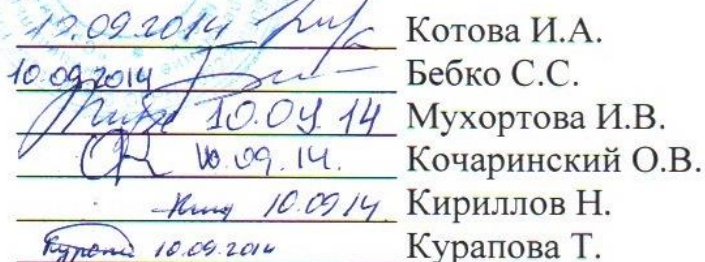 10.09.2014 Котова И.А.
10.09.2014 Бебко С.С.
10.09.14 Мухортова И.В.
10.09.14. Кочаринский О.В.
10.09.14 Кириллов Н.
10.09.2014 Курапова Т.